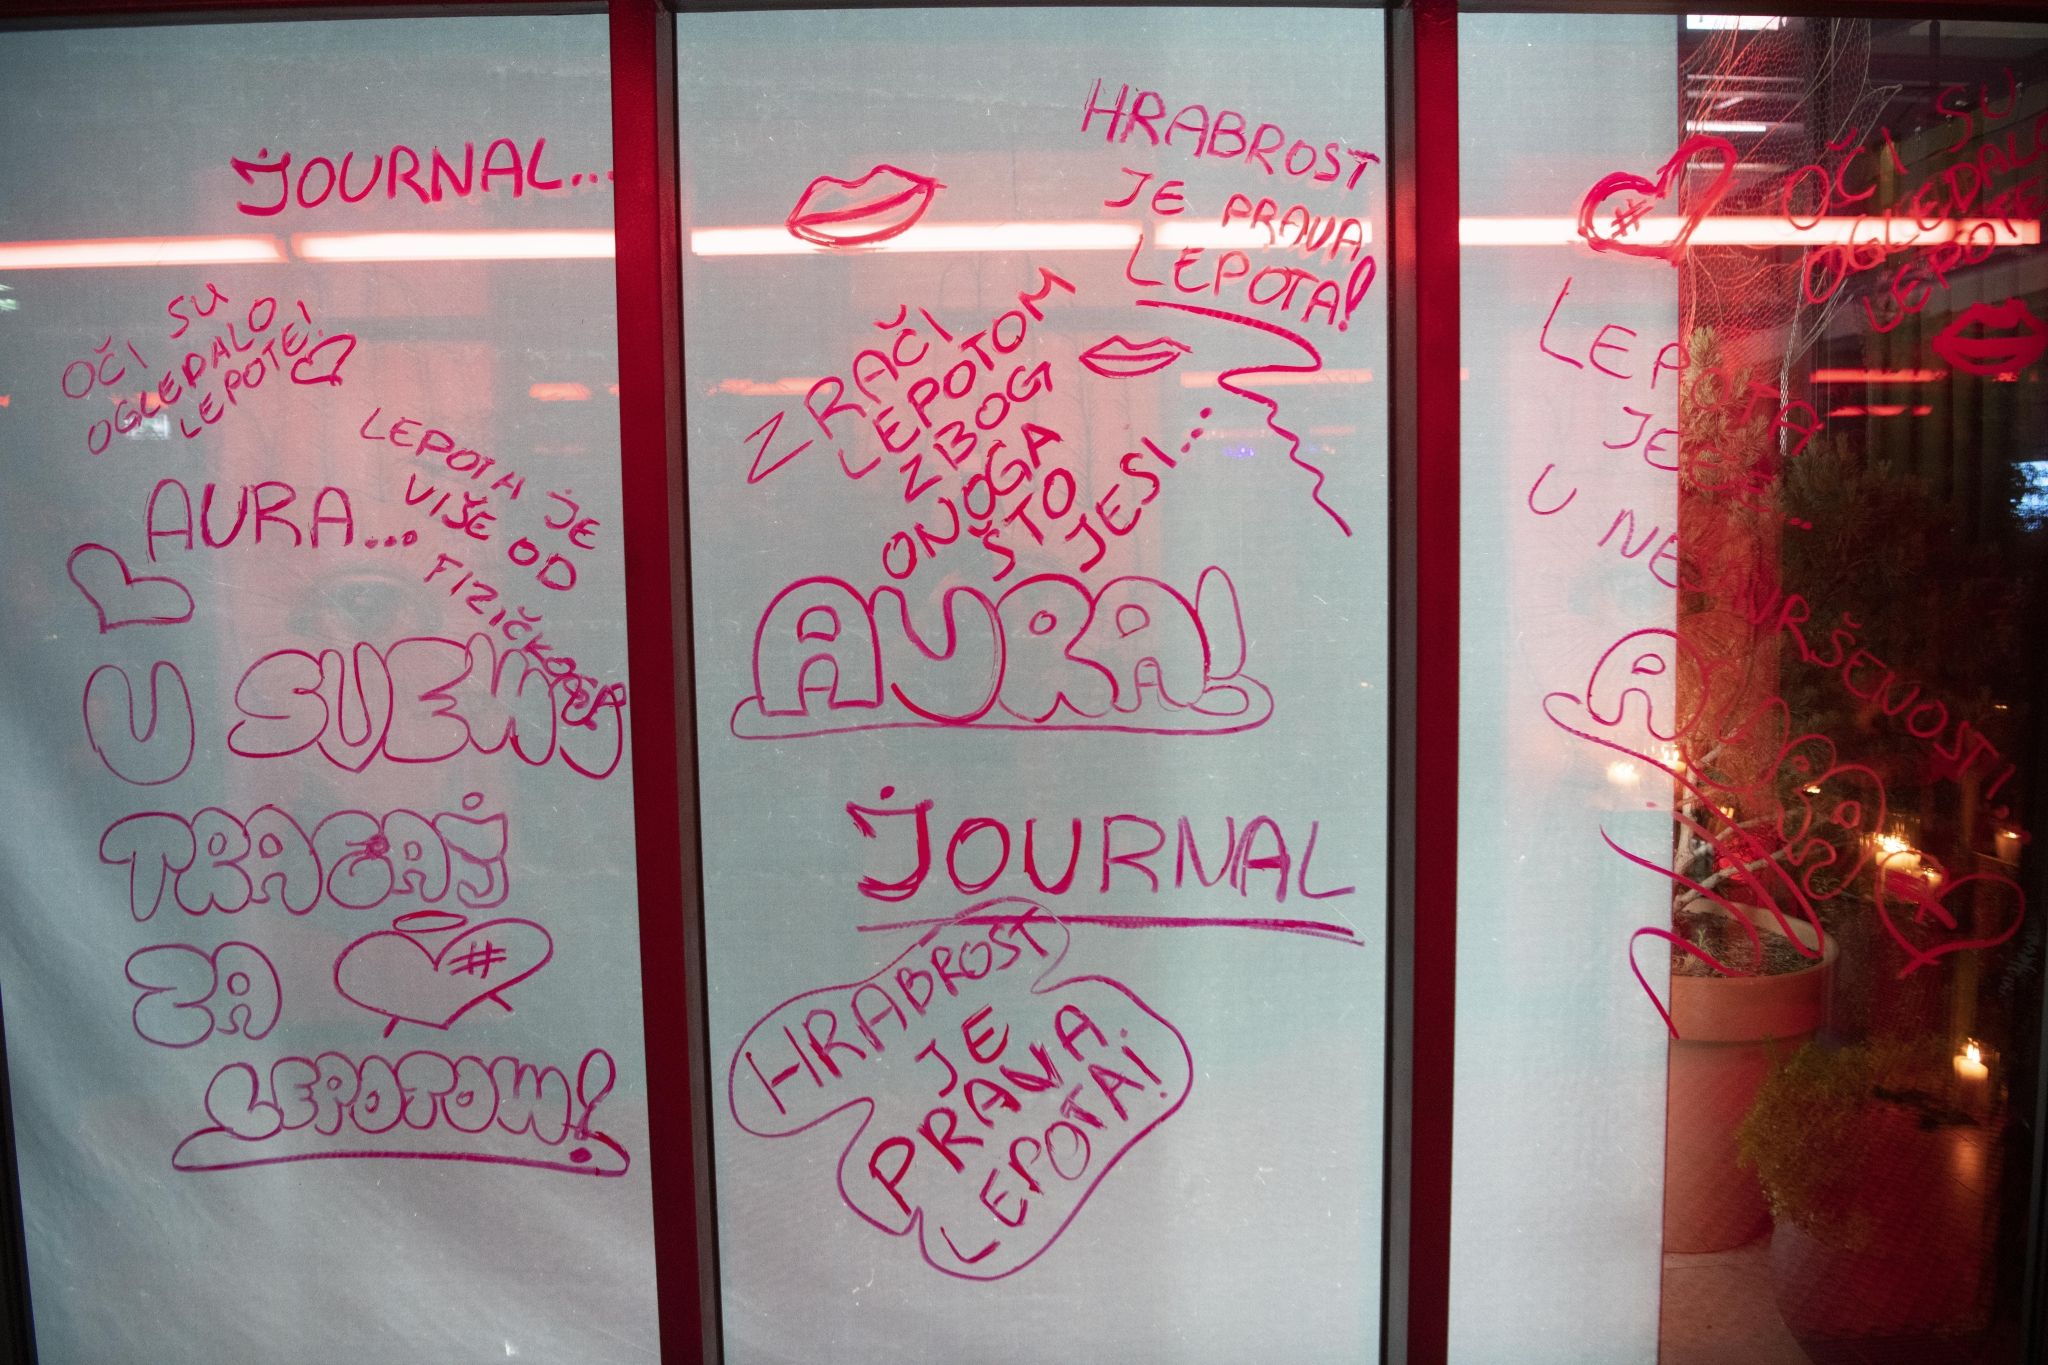 JOURNAL...
OČI SU
OGLEDALO
LEPOTE!
LEPOTA JE
VIŠE OD
FIZIČKOGA
AURA...
U SVEMU
TRAGAJ
ZA #
LEPOTOM!
HRABROST
JE PRAVA
LEPOTA!
ZRAČI
LEPOTOM
ZBOG
ONOGA
ŠTO
JESI...
AURA!
JOURNAL
HRABROST
JE
PRAVA
LEPOTA!
#
OČI SU
OGLEDALO
LEPOTE
LEPOTA
JE...
U NESAVRŠENOSTI!
AURA